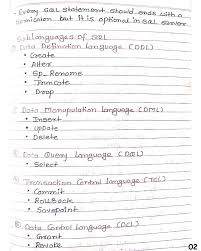 - Every SQL statement should ends with a
semicolon but it is optional in SQL server
Sublanguages of SQL
① Data Defination Language (DDL)
• Create
• Alter
• Sp_Rename
• Truncate
• Drop
② Data Manupulation Language (DML)
• Insert
• Update
• Delete
③ Data Query Language (DQL)
• Select
④ Transaction Control Language (TCL)
• Commit
• RollBack
• Savepoint
⑤ Data Control Language (DCL)
• Grant
• Revoke
02